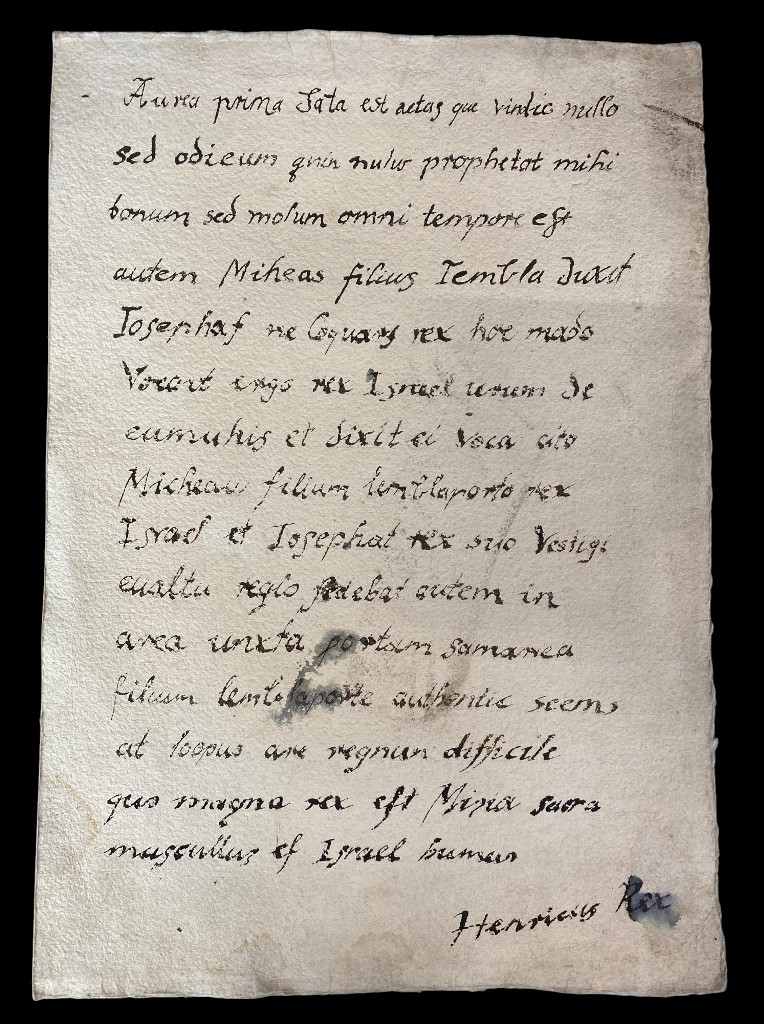 Aurea prima Sata est aetas que vindic nullo
sed odieum quin nulus prophetat mihi
bonum sed molum omni tempore est
autem Miheas filius Iembla duxit
Iosephaf ne loquaris rex hoe mado
Vocavit ergo rex Israel unum de
eumuhis et dixit ei Voca cito
Micheau filium Iemblaporto rex
Israel et Iosephat rex suo Vestigi
eualtu regio sedebat autem in
area unxta portam samarea
filium Iemblaporte authentic seems
at loopus are regnun difficile
quo magna rex est Mixia sacra
mascullus ef Israel humus
Henricus Rex